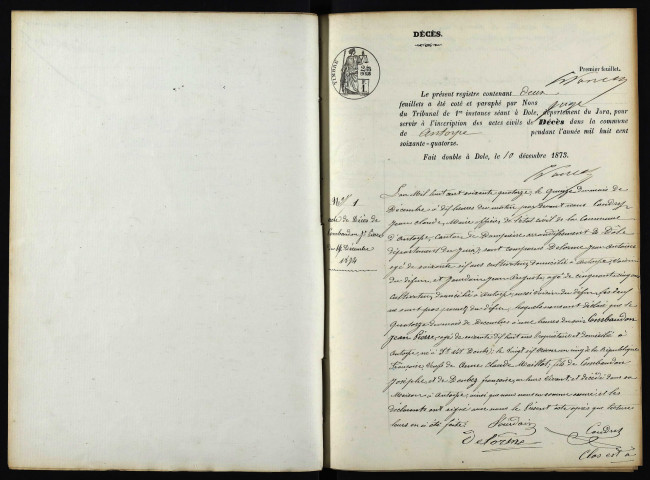 DÉCÈS.
TIMBRE
Premier feuillet.
Le présent registre contenant deux
feuillets a été coté et paraphé par Nous juge
du Tribunal de 1re instance séant à Dole, département du Jura, pour
servir à l'inscription des actes civils de Décès dans la commune
de Antorpe pendant l'année mil huit cent
soixante-quatorze.
Fait double à Dole, le 10 décembre 1873.
No 1
acte de Décès de
Combaudon Jn Pierre
du 14 Décembre
1874
L'an Mil huit cent soixante quatorze, le quinze du mois de
Décembre à dix heures du matin par devant nous Coudrez
jean claude, Maire officier de l'état civil de la Commune
d'Antorpe, canton de Dampierre arrondissement de Dole
département du Jura, sont comparus Delorme jean
agé de soixante six ans cultivateur domicilié à Antorpe, voisin
du défunt et Jourdain jean auguste, agé de cinquante cinq ans
cultivateur domicilié à Antorpe, aussi voisin du défunt
ne sont pas parents du défunt, lesquels nous ont déclaré que le
Quatorze du mois de Décembre à une heure du soir Combaudon
jean Pierre, agé de soixante dix huit ans Propriétaire et domicilié à
Antorpe, né à St Vit Doubs, le vingt six de la République
française, veuf de Anne Claude Maillot, fils de Combaudon
Josephe et de françoise, en leur vivant et décédé dans sa
Maison à Antorpe, ainsi que nous nous en sommes assuré et les
déclarants ont signé avec nous le Présent acte après que lecture
leurs en a été faite.
Jourdain
Delorme
Coudrez
Clos et à